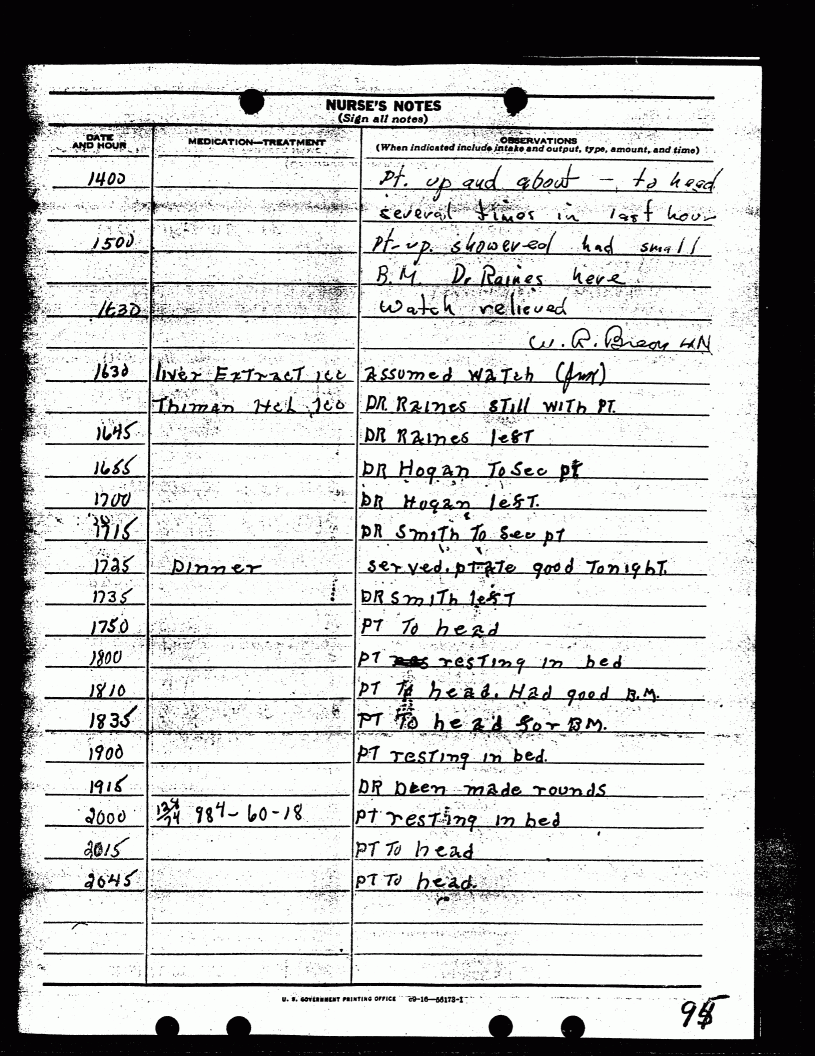 NURSE'S NOTES
(Sign all notes)
DATE AND HOUR MEDICATION—TREATMENT OBSERVATIONS
(When indicated include intake and output, type, amount, and time)
1400 Pt. up and about — to head
several times in last hour
1500 Pt-up. showered had small
B.M. Dr Raines here.
1630 Watch relieved
W. R. HN
1630 liver Extract 1cc Assumed Watch
Thiman Hcl 1cc DR Raines still with PT.
1645 DR Raines left
1655 DR Hogan To See pt
1700 DR Hogan left.
1715 DR Smith To See pt
1725 Dinner served. pt ate good Tonight.
1735 DR Smith left
1750 PT To head
1800 PT resting in bed
1810 PT To head. Had good B.M.
1835 PT To head for BM.
1900 PT resting in bed.
1915 DR Deen made rounds
2000 138/74 984-60-18 PT resting in bed
2015 PT To head
2045 PT To head.
U. S. GOVERNMENT PRINTING OFFICE c9-16—56173-1